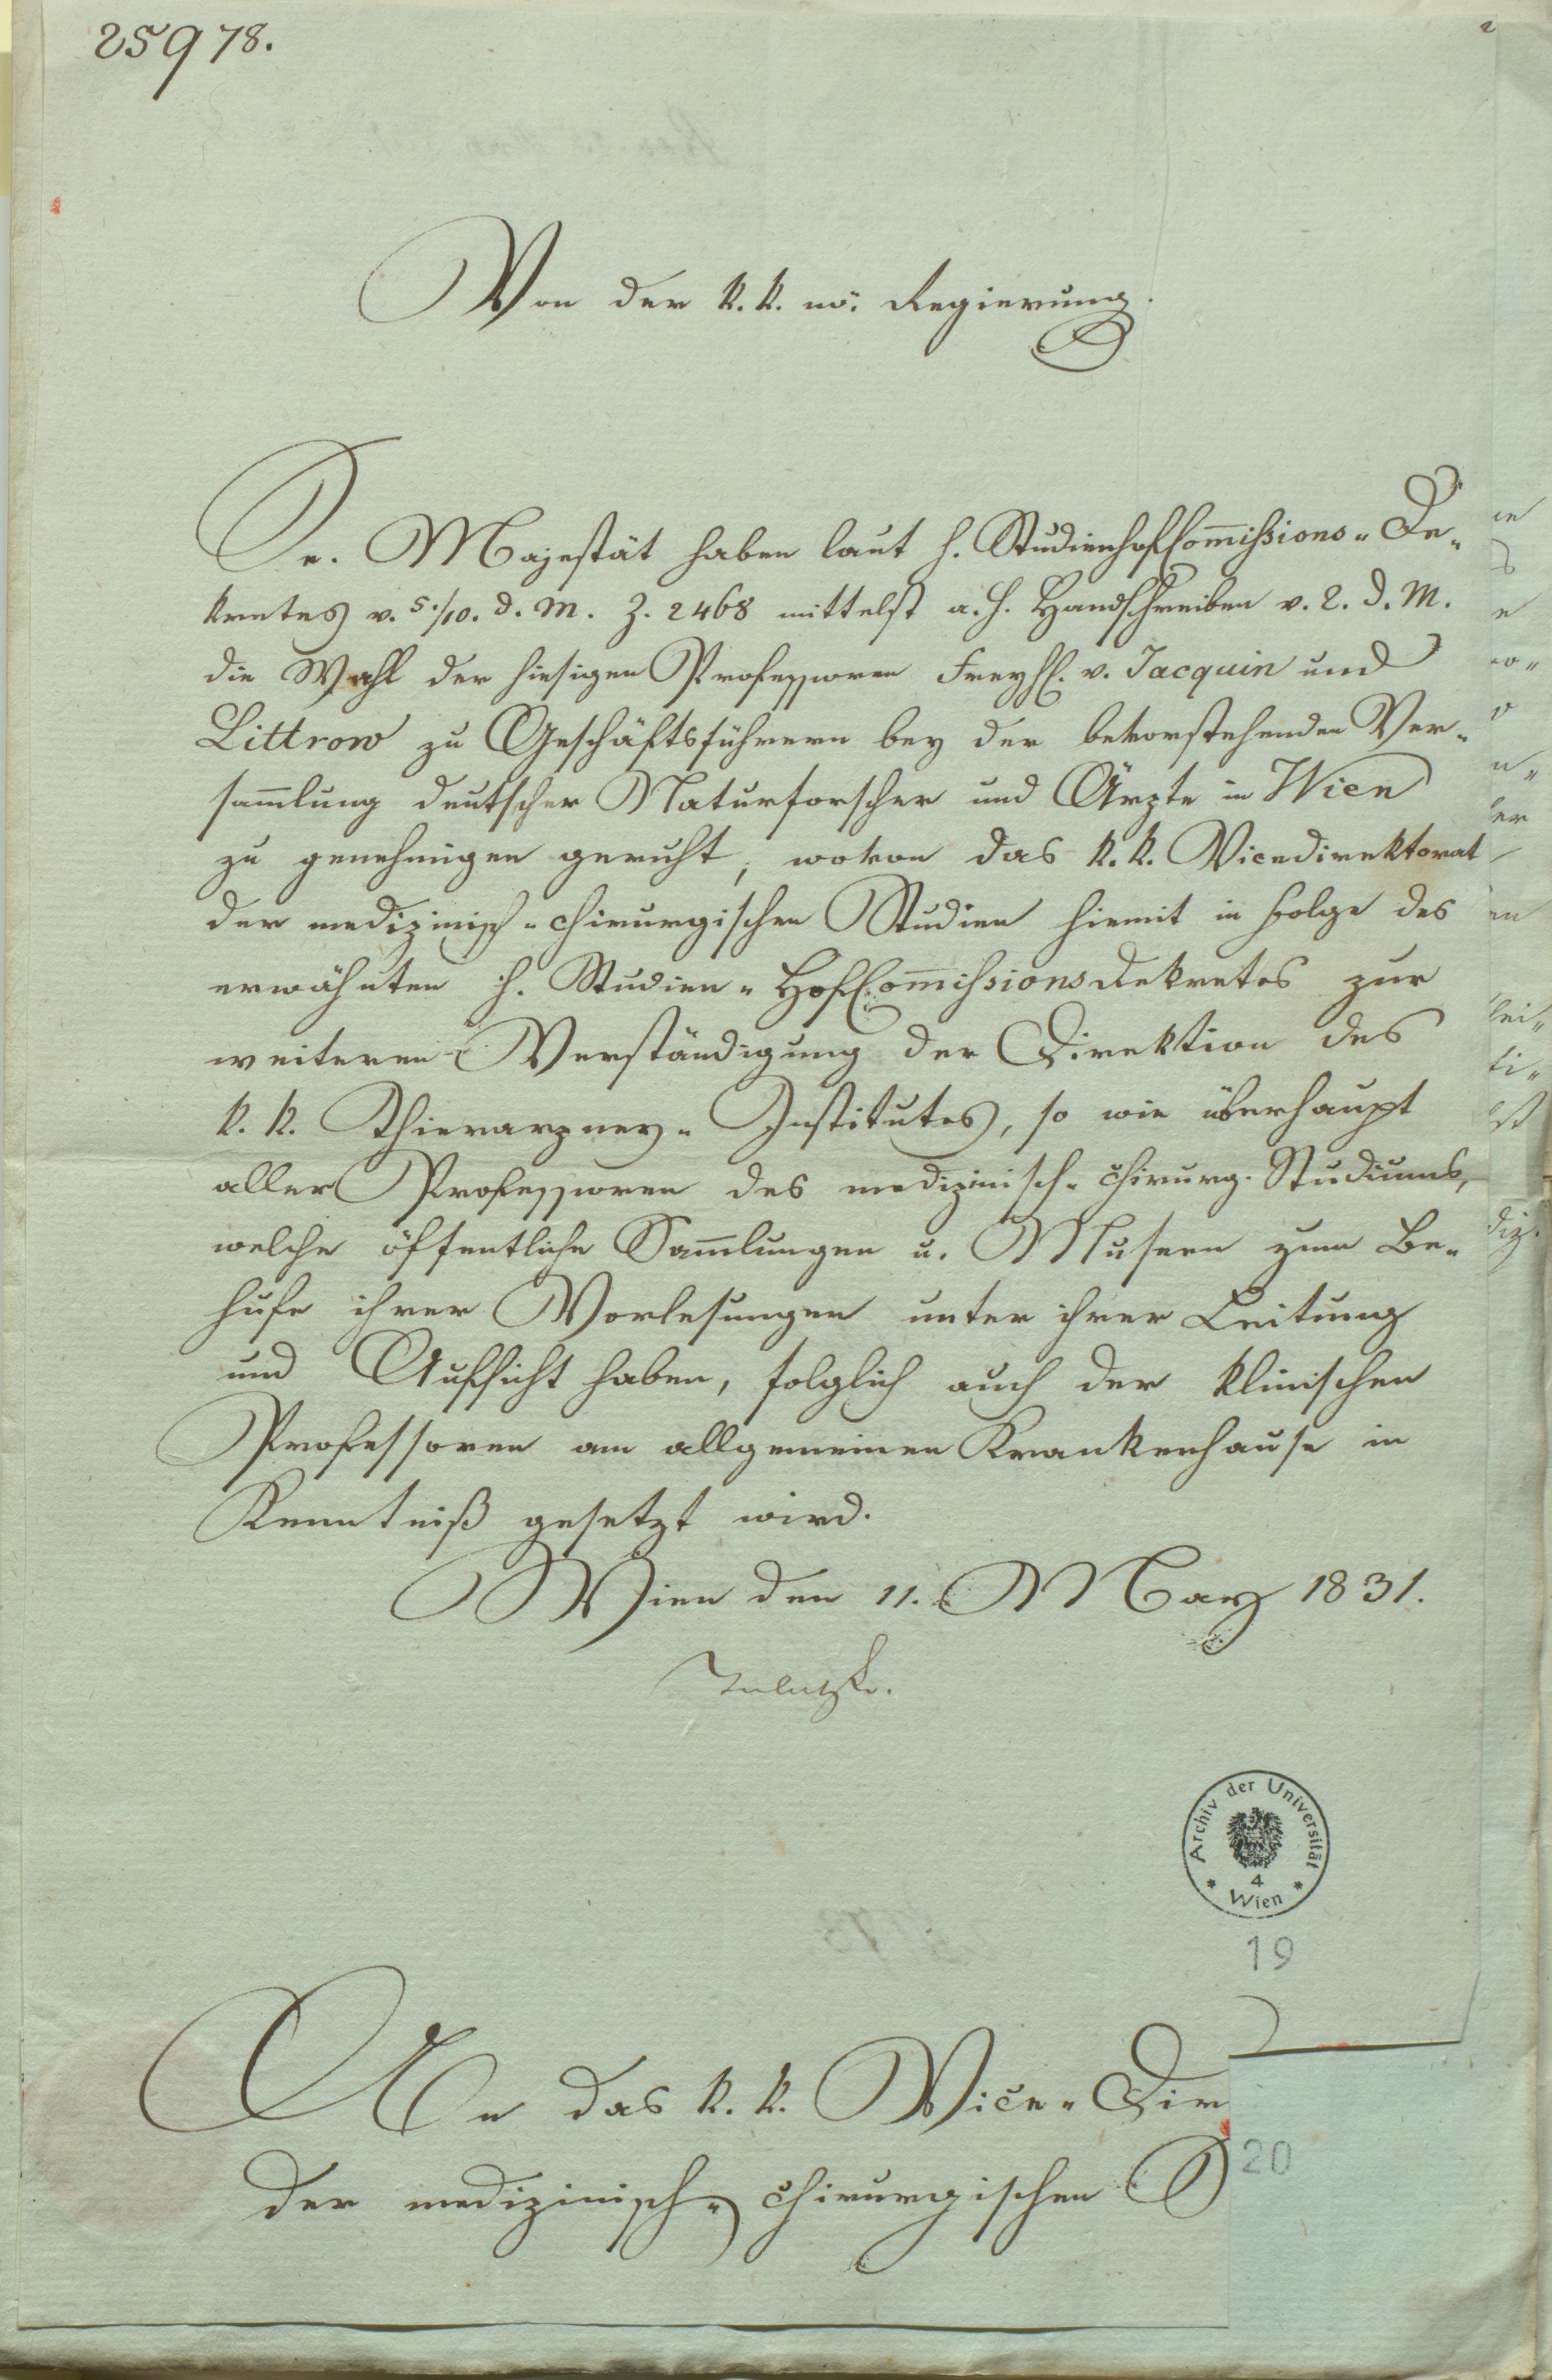 25978.
2
Von der k. k. nö. Regierung.
Se. Majestät haben laut h. StudienhofCom̄ißions-De-
kretes v. 5./10. d. M. Z. 2468 mittelst a. h. Handschreiben v. 2. d. M.
die Wahl der hiesigen Professoren Freyh. v. Jacquin und
Littrow zu Geschäftsführern bey der bevorstehenden Ver-
sam̄lung deutscher Naturforscher und Ärzte in Wien
zu genehmigen geruht, wovon das k. k. Vicedirektorat
der medizinisch-chirurgischen Studien hiemit in Folge des
erwähnten h. Studien-HofCom̄ißionsdekretes zur
weiteren Verständigung der Direktion des
k. k. Thierarzney-Institutes, so wie überhaupt
aller Professoren des medizinisch-chirurg. Studiums,
welche öffentliche Sam̄lungen u. Museen zum Be-
hufe ihrer Vorlesungen unter ihrer Leitung
und Aufsicht haben, folglich auch der klinischen
Professoren am allgemeinen Krankenhause in
Kenntniß gesetzt wird.
Wien den 11. May 1831.
Archiv der Universität
4
Wien
19
An das k. k. Vice-Dir
der medizinisch-chirurgischen S
20